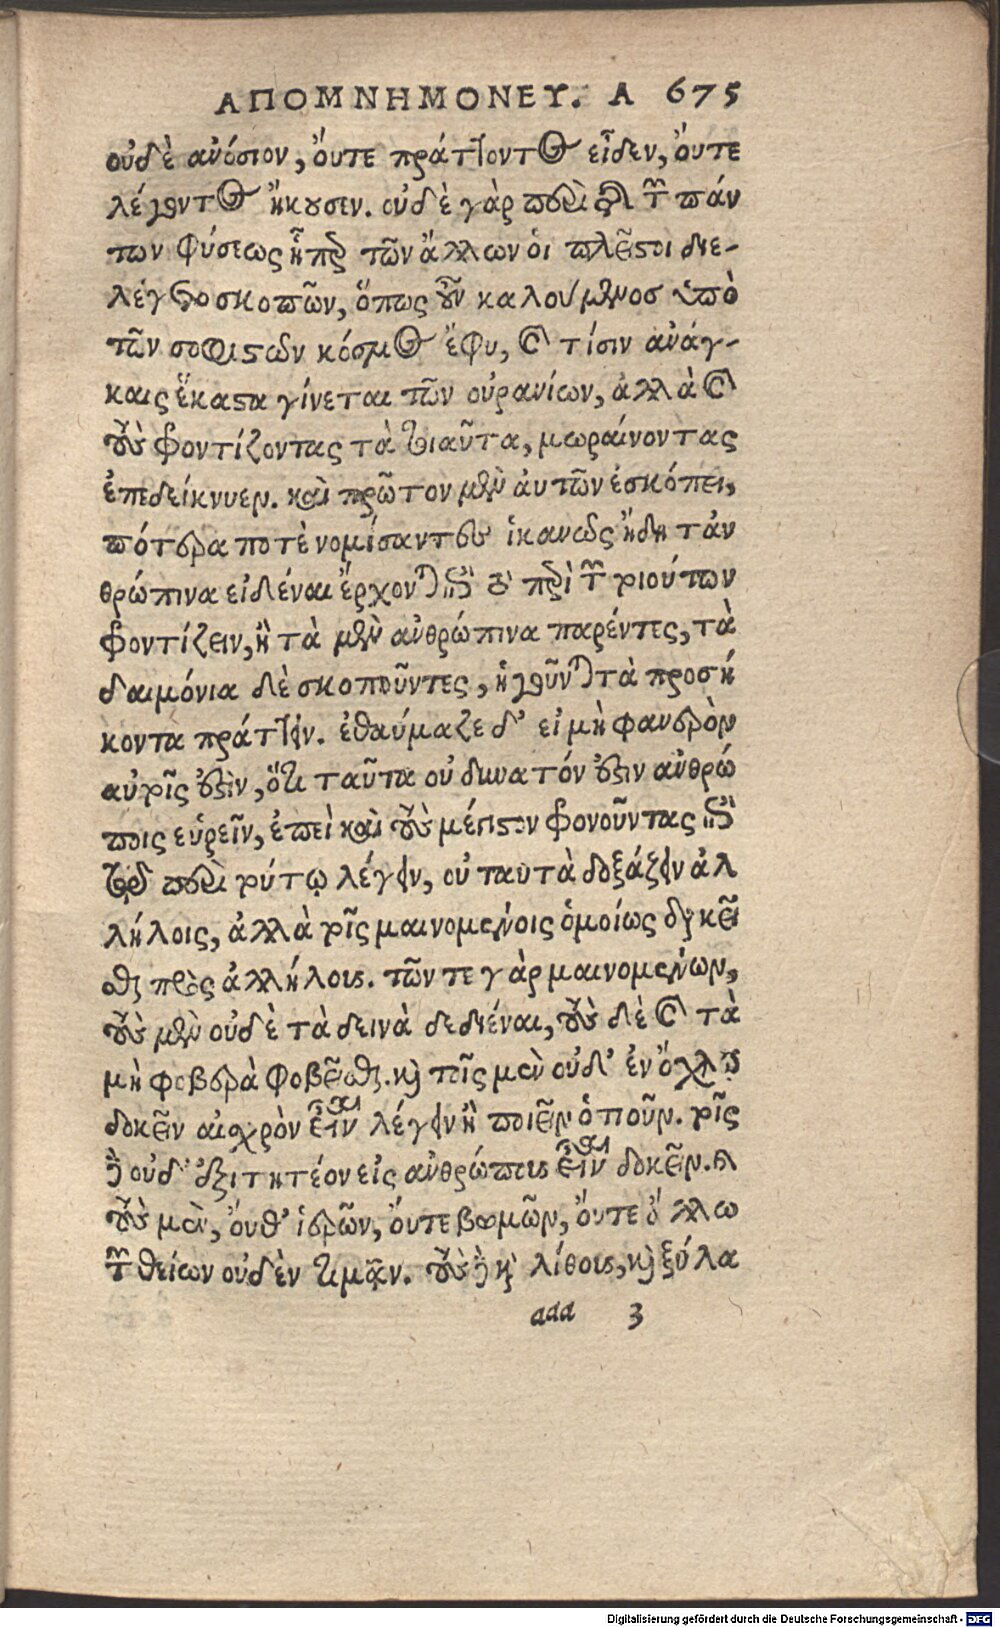 ΑΠΟΜΝΗΜΟΝΕΥ. Α 675
οὐδὲ ἀνόσιον, ὄυτε πράττοντος εἶδεν, ὄυτε
λέγοντος ἤκουσεν. οὐδὲ γὰρ περὶ τῆς τῶν πάν
των φύσεως ᾗπερ τῶν ἄλλων ὁι πλεῖστοι διε-
λέγετο σκοπῶν, ὅπως ὁ νῦν καλούμενος ὑπὸ
τῶν σοφιστῶν κόσμος ἔφυ, καὶ τίσιν ἀνάγ-
καις ἕκαστα γίνεται τῶν οὐρανίων, ἀλλὰ καὶ
τοὺς φροντίζοντας τὰ τοιαῦτα, μωραίνοντας
ἐπεδείκνυεν. καὶ πρῶτον μὲν ἀυτῶν ἐσκόπει,
πότερα ποτὲ νομίσαντες ἱκανῶς ἤδη τἀν
θρώπινα εἰδέναι ἔρχονται ἐπὶ τὸ περὶ τῶν τοιούτων
φροντίζειν, ἢ τὰ μὲν ἀνθρώπινα παρέντες, τὰ
δαιμόνια δὲ σκοποῦντες, ἡγοῦνται τὰ προσή
κοντα πράττειν. ἐθαύμαζε δ' εἰ μὴ φανερὸν
αὐτοῖς ἐστὶν, ὅτι ταῦτα οὐ δυνατόν ἐστιν ἀνθρώ
ποις εὑρεῖν, ἐπεὶ καὶ τοὺς μέγιστον φρονοῦντας ἐπὶ
τῷ περὶ τούτων λέγειν, οὐ ταυτὰ δοξάζειν ἀλ
λήλοις, ἀλλὰ τοῖς μαινομένοις ὁμοίως διακεῖ
σθαι πρὸς ἀλλήλους. τῶν τε γὰρ μαινομένων,
τοὺς μὲν οὐδὲ τὰ δεινὰ δεδιέναι, τοὺς δὲ καὶ τὰ
μὴ φοβερὰ φοβεῖσθαι. καὶ τοῖς μὲν οὐδ' ἐν ὄχλῳ
δοκεῖν αἰσχρὸν εἶναι λέγειν ἢ ποιεῖν ὁποῦν. τοῖς
δὲ οὐδ' ἐξιτητέον εἰς ἀνθρώπους εἶναι δοκεῖν. καὶ
τοὺς μὲν, ὄυθ' ἱερῶν, ὄυτε βωμῶν, ὄυτε ἄλλω
τῶν θείων οὐδὲν τιμᾷν. τοὺς δὲ καὶ λίθους, καὶ ξύλα
add 3
Digitalisierung gefördert durch die Deutsche Forschungsgemeinschaft - DFG